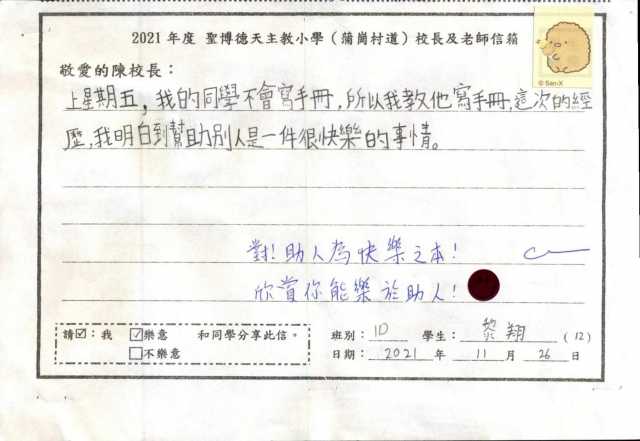 2021年度 聖博德天主教小學（蒲崗村道）校長及老師信箱
敬愛的陳校長：
上星期五，我的同學不會寫手冊，所以我教他寫手冊，這次的經
歷，我明白到幫助別人是一件很快樂的事情。
對！助人為快樂之本！
欣賞你能樂於助人！
請☑：我 ☑樂意 和同學分享此信。
□不樂意
班別：1D 學生：黎翔 (12)
日期：2021 年 11 月 26 日
© San-X